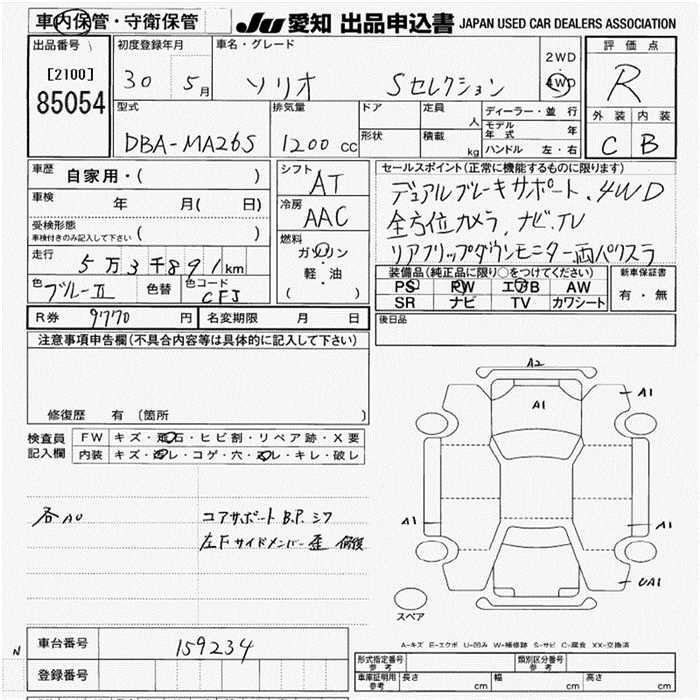 車内保管・守衛保管
JU 愛知 出品申込書 JAPAN USED CAR DEALERS ASSOCIATION
出品番号
[2100]
85054
初度登録年月
30 5月
車名・グレード
ソリオ Sセレクション
2WD
4WD
評価点
R
外装 内装
C B
型式
DBA-MA26S
排気量
1200 cc
ドア
形状
定員 人
積載 kg
ディーラー・並行
モデル年式 年
ハンドル 左・右
車歴 自家用・( )
車検 年 月( 日)
受検形態
車検付きのみ記入して下さい ( )
走行 5万3千891km
色 ブルーII 色替 色コード CFJ
シフト AT
冷房 AAC
燃料
ガソリン
軽・油
( )
セールスポイント(正常に機能するものに限ります)
デュアルブレーキサポート、4WD
全方位カメラ、ナビ、TV
リアフリップダウンモニター両パワスラ
装備品(純正品に限り○をつけてください)
PS PW エアB AW
SR ナビ TV カワシート
新車保証書
有・無
R券 9770 円 名変期限 月 日
後日品
注意事項申告欄(不具合内容等は具体的に記入して下さい)
修復歴 有 (箇所 )
検査員記入欄
FW キズ・飛石・ヒビ割・リペア跡・X要
内装 キズ・汚レ・コゲ・穴・スレ・キレ・破レ
各A0
コアサポート B.P. シワ
左Fサイドメンバー 歪 修復
A2
A1
A1
A1
A1
UA1
スペア
A-キズ E-エクボ U-凹み W-補修跡 S-サビ C-腐食 XX-交換済
車台番号 159234
N
登録番号
形式指定番号 参考
類別区分番号 参考
車庫証明用 参考 長さ cm 幅 cm 高さ cm